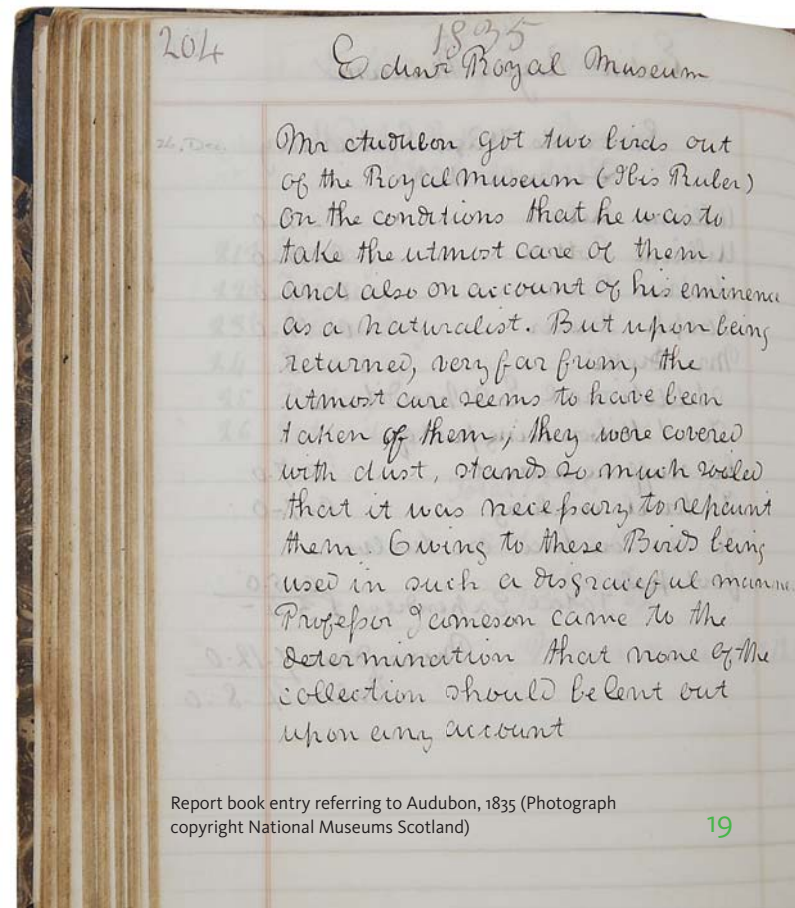 204
1835
Edinr Royal Museum
26, Dec
Mr Audubon got two birds out
of the Royal Museum (Ibis Ruber)
on the conditions that he was to
take the utmost care of them
and also on account of his eminence
as a naturalist. But upon being
returned, very far from, the
utmost care seems to have been
taken of them, they were covered
with dust, stands so much soiled
that it was necessary to repaint
them. Owing to these Birds being
used in such a disgraceful manne
Professor Jameson came to the
determination that none of the
collection should be lent out
upon any account
Report book entry referring to Audubon, 1835 (Photograph
copyright National Museums Scotland)
19